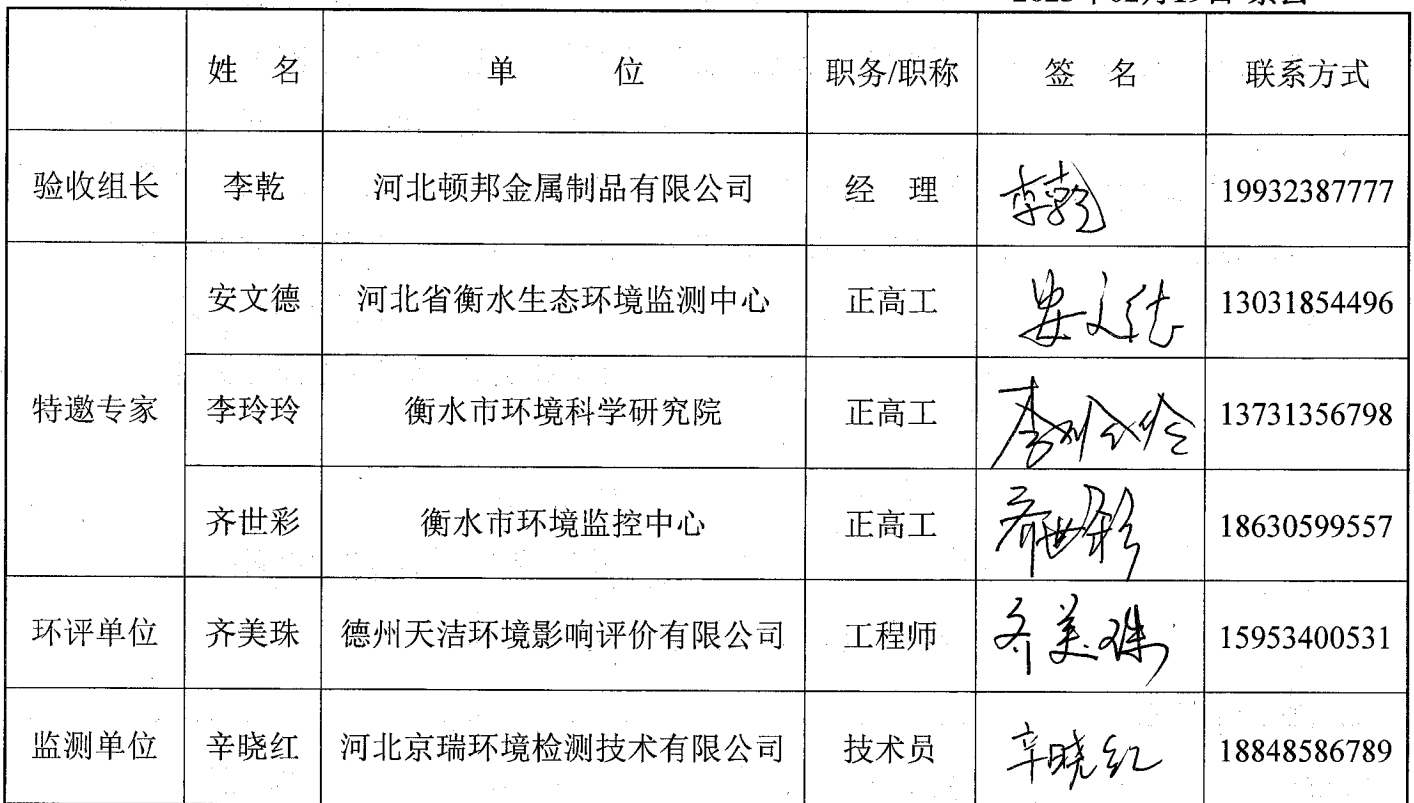 姓 名 单 位 职务/职称 签 名 联系方式
验收组长 李乾 河北顿邦金属制品有限公司 经 理 李乾 19932387777
特邀专家
安文德 河北省衡水生态环境监测中心 正高工 安文德 13031854496
李玲玲 衡水市环境科学研究院 正高工 李玲玲 13731356798
齐世彩 衡水市环境监控中心 正高工 齐世彩 18630599557
环评单位 齐美珠 德州天洁环境影响评价有限公司 工程师 齐美珠 15953400531
监测单位 辛晓红 河北京瑞环境检测技术有限公司 技术员 辛晓红 18848586789